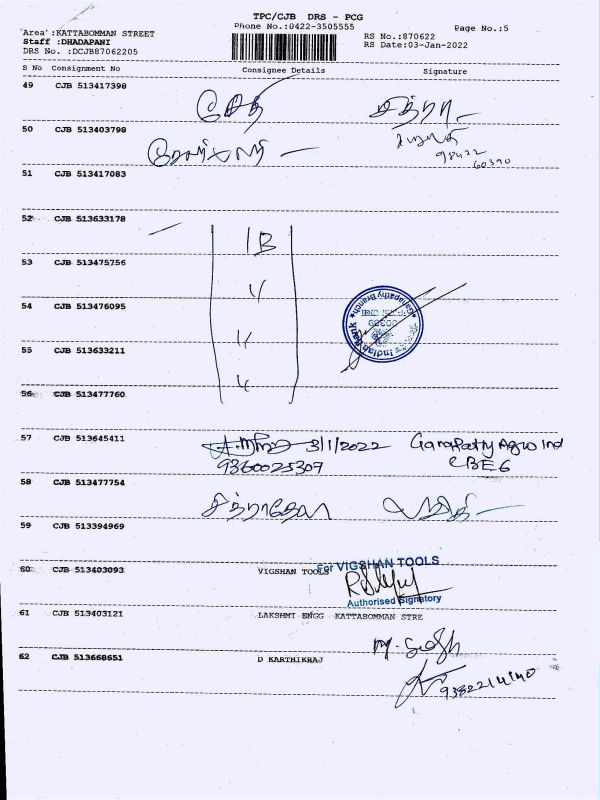 TPC/CJB DRS - PCG
Phone No.:0422-3505555
Page No.:5
Area :KATTABOMMAN STREET
Staff :DHADAPANI
DRS No. :DCJB87062205
RS No.:870622
RS Date:03-Jan-2022
S No Consignment No Consignee Details Signature
49 CJB 513417398
50 CJB 513403798
98422
60390
51 CJB 513417083
52 CJB 513633178
IB
53 CJB 513475756
〃
54 CJB 513476095
Indian Bank
Ganapathy Branch
〃
55 CJB 513633211
〃
56 CJB 513477760
57 CJB 513645411 3/1/2022 Ganapathy Agro Ind
9360025307 CBE 6
58 CJB 513477754
59 CJB 513394969
60 CJB 513403093 VIGSHAN TOOLS For VIGSHAN TOOLS
Authorised Signatory
61 CJB 513403121 LAKSHMI ENGG KATTABOMMAN STRE
62 CJB 513668651 D KARTHIKRAJ